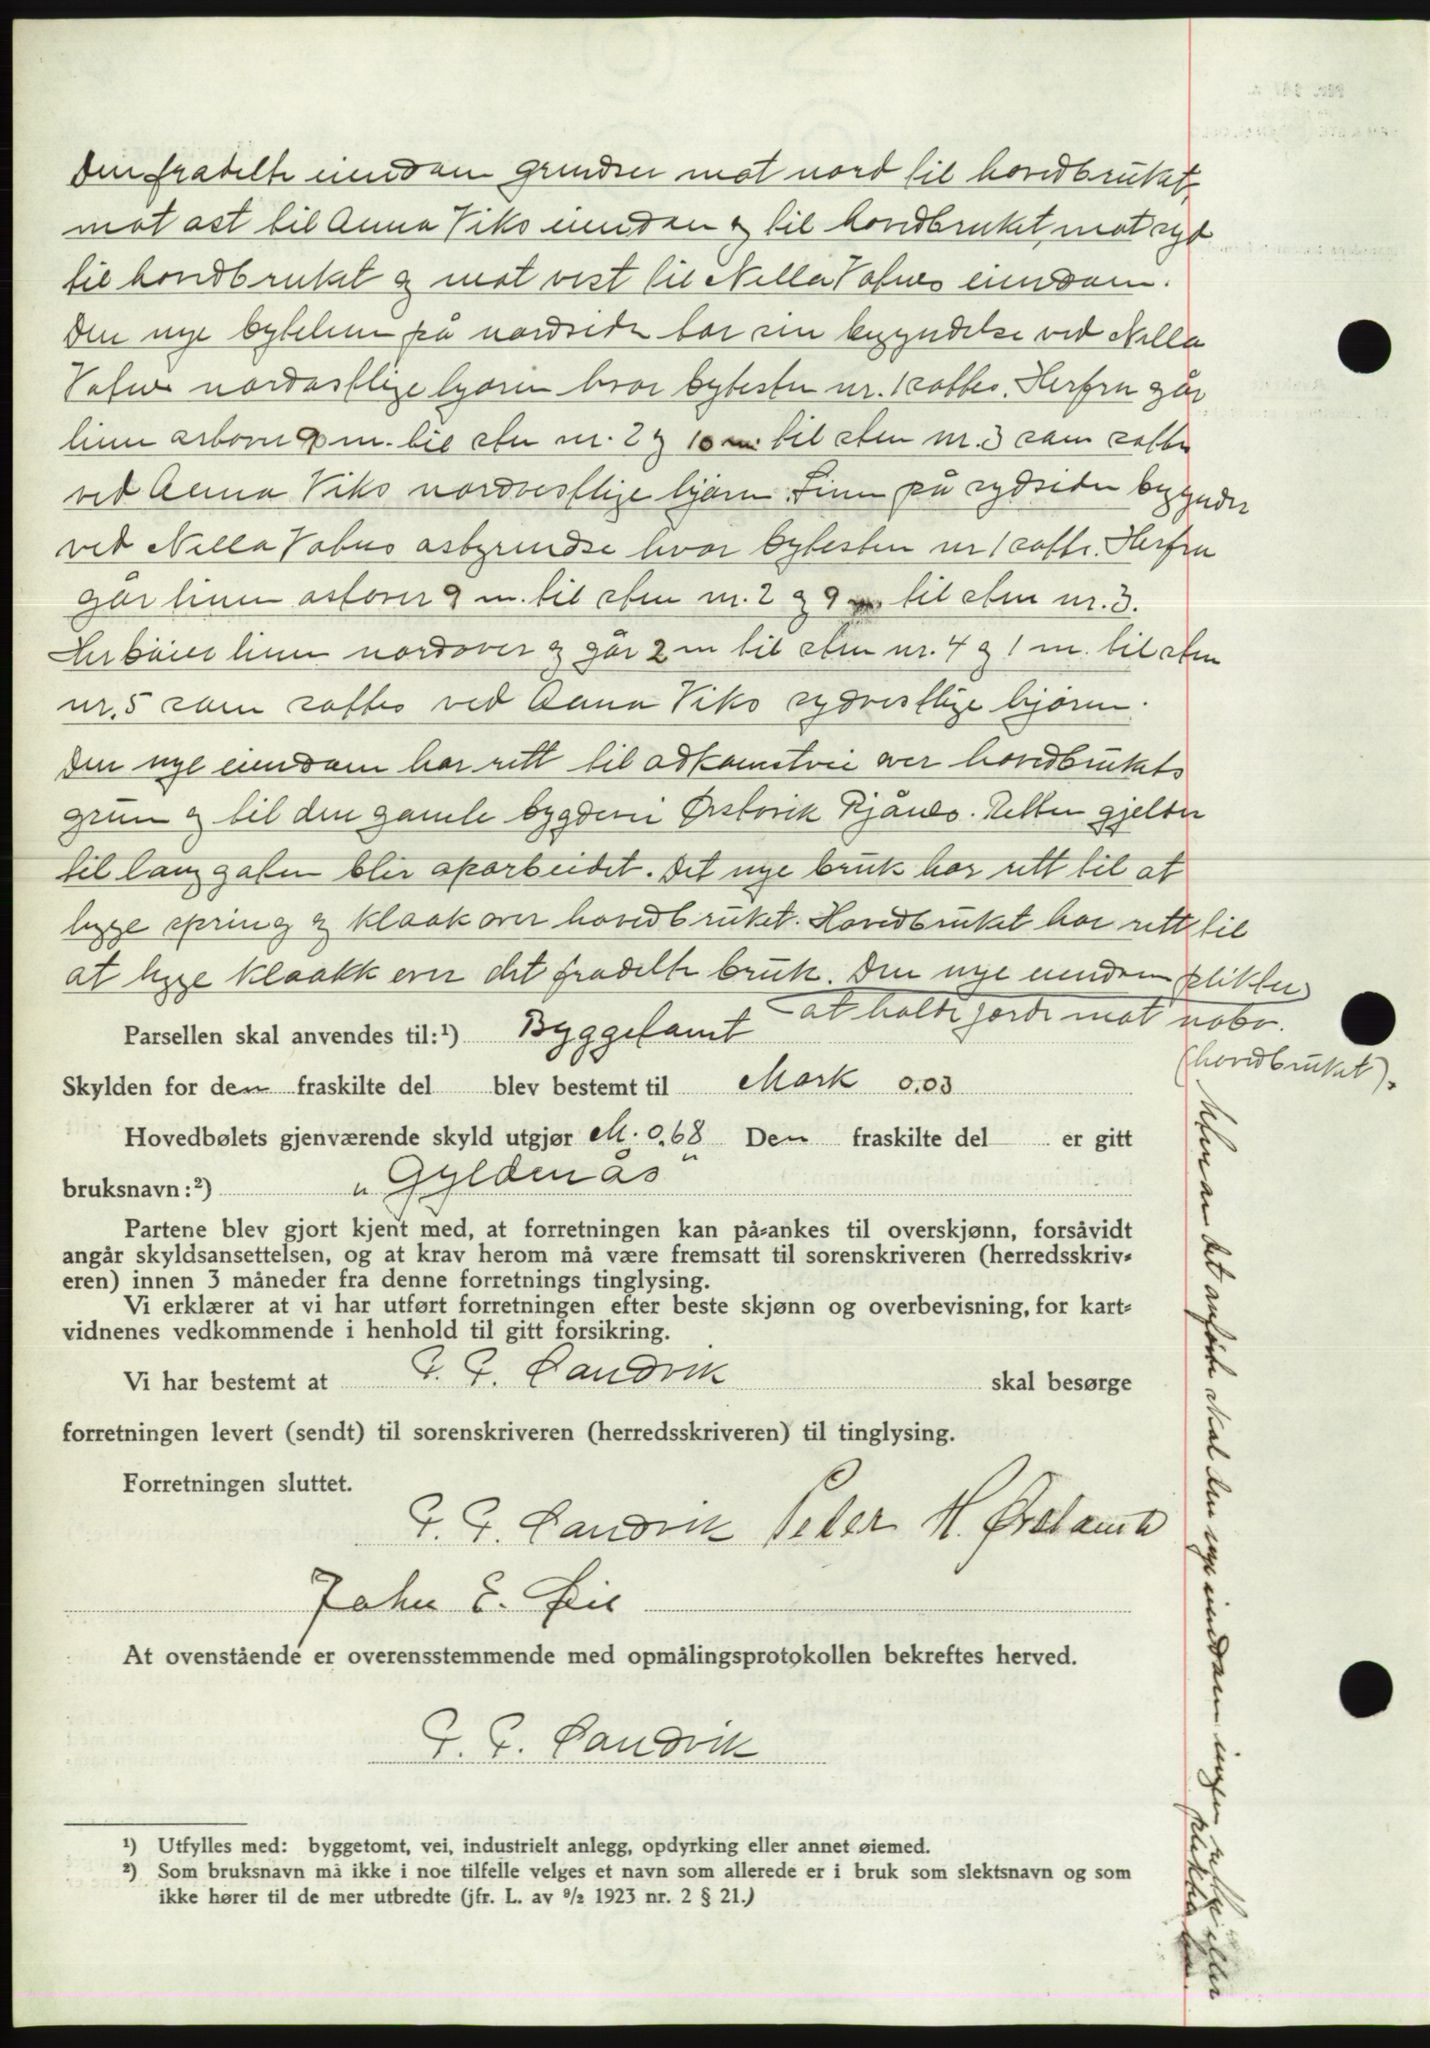 Den fradelte eiendom grendser mot nord til hovedbruket,
mot ost til Anna Viks eiendom og til hovedbruket, mot syd
til hovedbruket og mot vest til Nella Vatnes eiendom.
Den nye bytelinn på nordsiden tar sin begyndelse ved Nella
Vatnes nordostlige hjorne hvor bytesten nr. 1 sattes. Herfra går
linn ostover 9 m. til sten nr. 2 og 10 m. til sten nr. 3 som sattes
ved Anna Viks nordvestlige hjorne. Linn på sydsiden begynder
ved Nella Vatnes ostgrendse hvor bytesten nr 1 sattes. Herfra
går linen ostover 9 m. til sten nr. 2 og 9 m. til sten nr. 3.
Her böier linen nordover og går 2 m til sten nr. 4 og 1 m. til sten
nr. 5 som sattes ved Anna Viks sydvestlige hjorne.
Den nye eiendom har rett til adkomstvei over hovedbrukets
grunn og til den gamle bygdevei Ørstavik Rjånes. Retten gjelder
til langgaten blir oparbeidet. Det nye bruk har rett til at
legge spring og kloak over hovedbruket. Hovedbruket har rett til
at legge kloakk over det fradelte bruk. Den nye eiendom plikter
at holde gjerde mot nabo.
(hovedbruket).
Parsellen skal anvendes til:¹) Byggetomt
Skylden for den fraskilte del blev bestemt til Mark 0.03
Hovedbølets gjenværende skyld utgjør M. 0,68 Den fraskilte del er gitt
bruksnavn:²) „Gyldenås"
Partene blev gjort kjent med, at forretningen kan på-ankes til overskjønn, forsåvidt
angår skyldsansettelsen, og at krav herom må være fremsatt til sorenskriveren (herredsskriv-
eren) innen 3 måneder fra denne forretnings tinglysing.
Vi erklærer at vi har utført forretningen efter beste skjønn og overbevisning, for kart-
vidnenes vedkommende i henhold til gitt forsikring.
Vi har bestemt at P. P. Sandvik skal besørge
forretningen levert (sendt) til sorenskriveren (herredsskriveren) til tinglysing.
Forretningen sluttet.
P. P. Sandvik Peter H. Ørstavik
John E. Øie
At ovenstående er overensstemmende med opmålingsprotokollen bekreftes herved.
P. P. Sandvik
¹) Utfylles med: byggetomt, vei, industrielt anlegg, opdyrking eller annet øiemed.
²) Som bruksnavn må ikke i noe tilfelle velges et navn som allerede er i bruk som slektsnavn og som
ikke hører til de mer utbredte (jfr. L. av ⁹/₂ 1923 nr. 2 § 21.)
Utenom det anförte skal den nye eiendom ingen rettig eller
plikter ha.